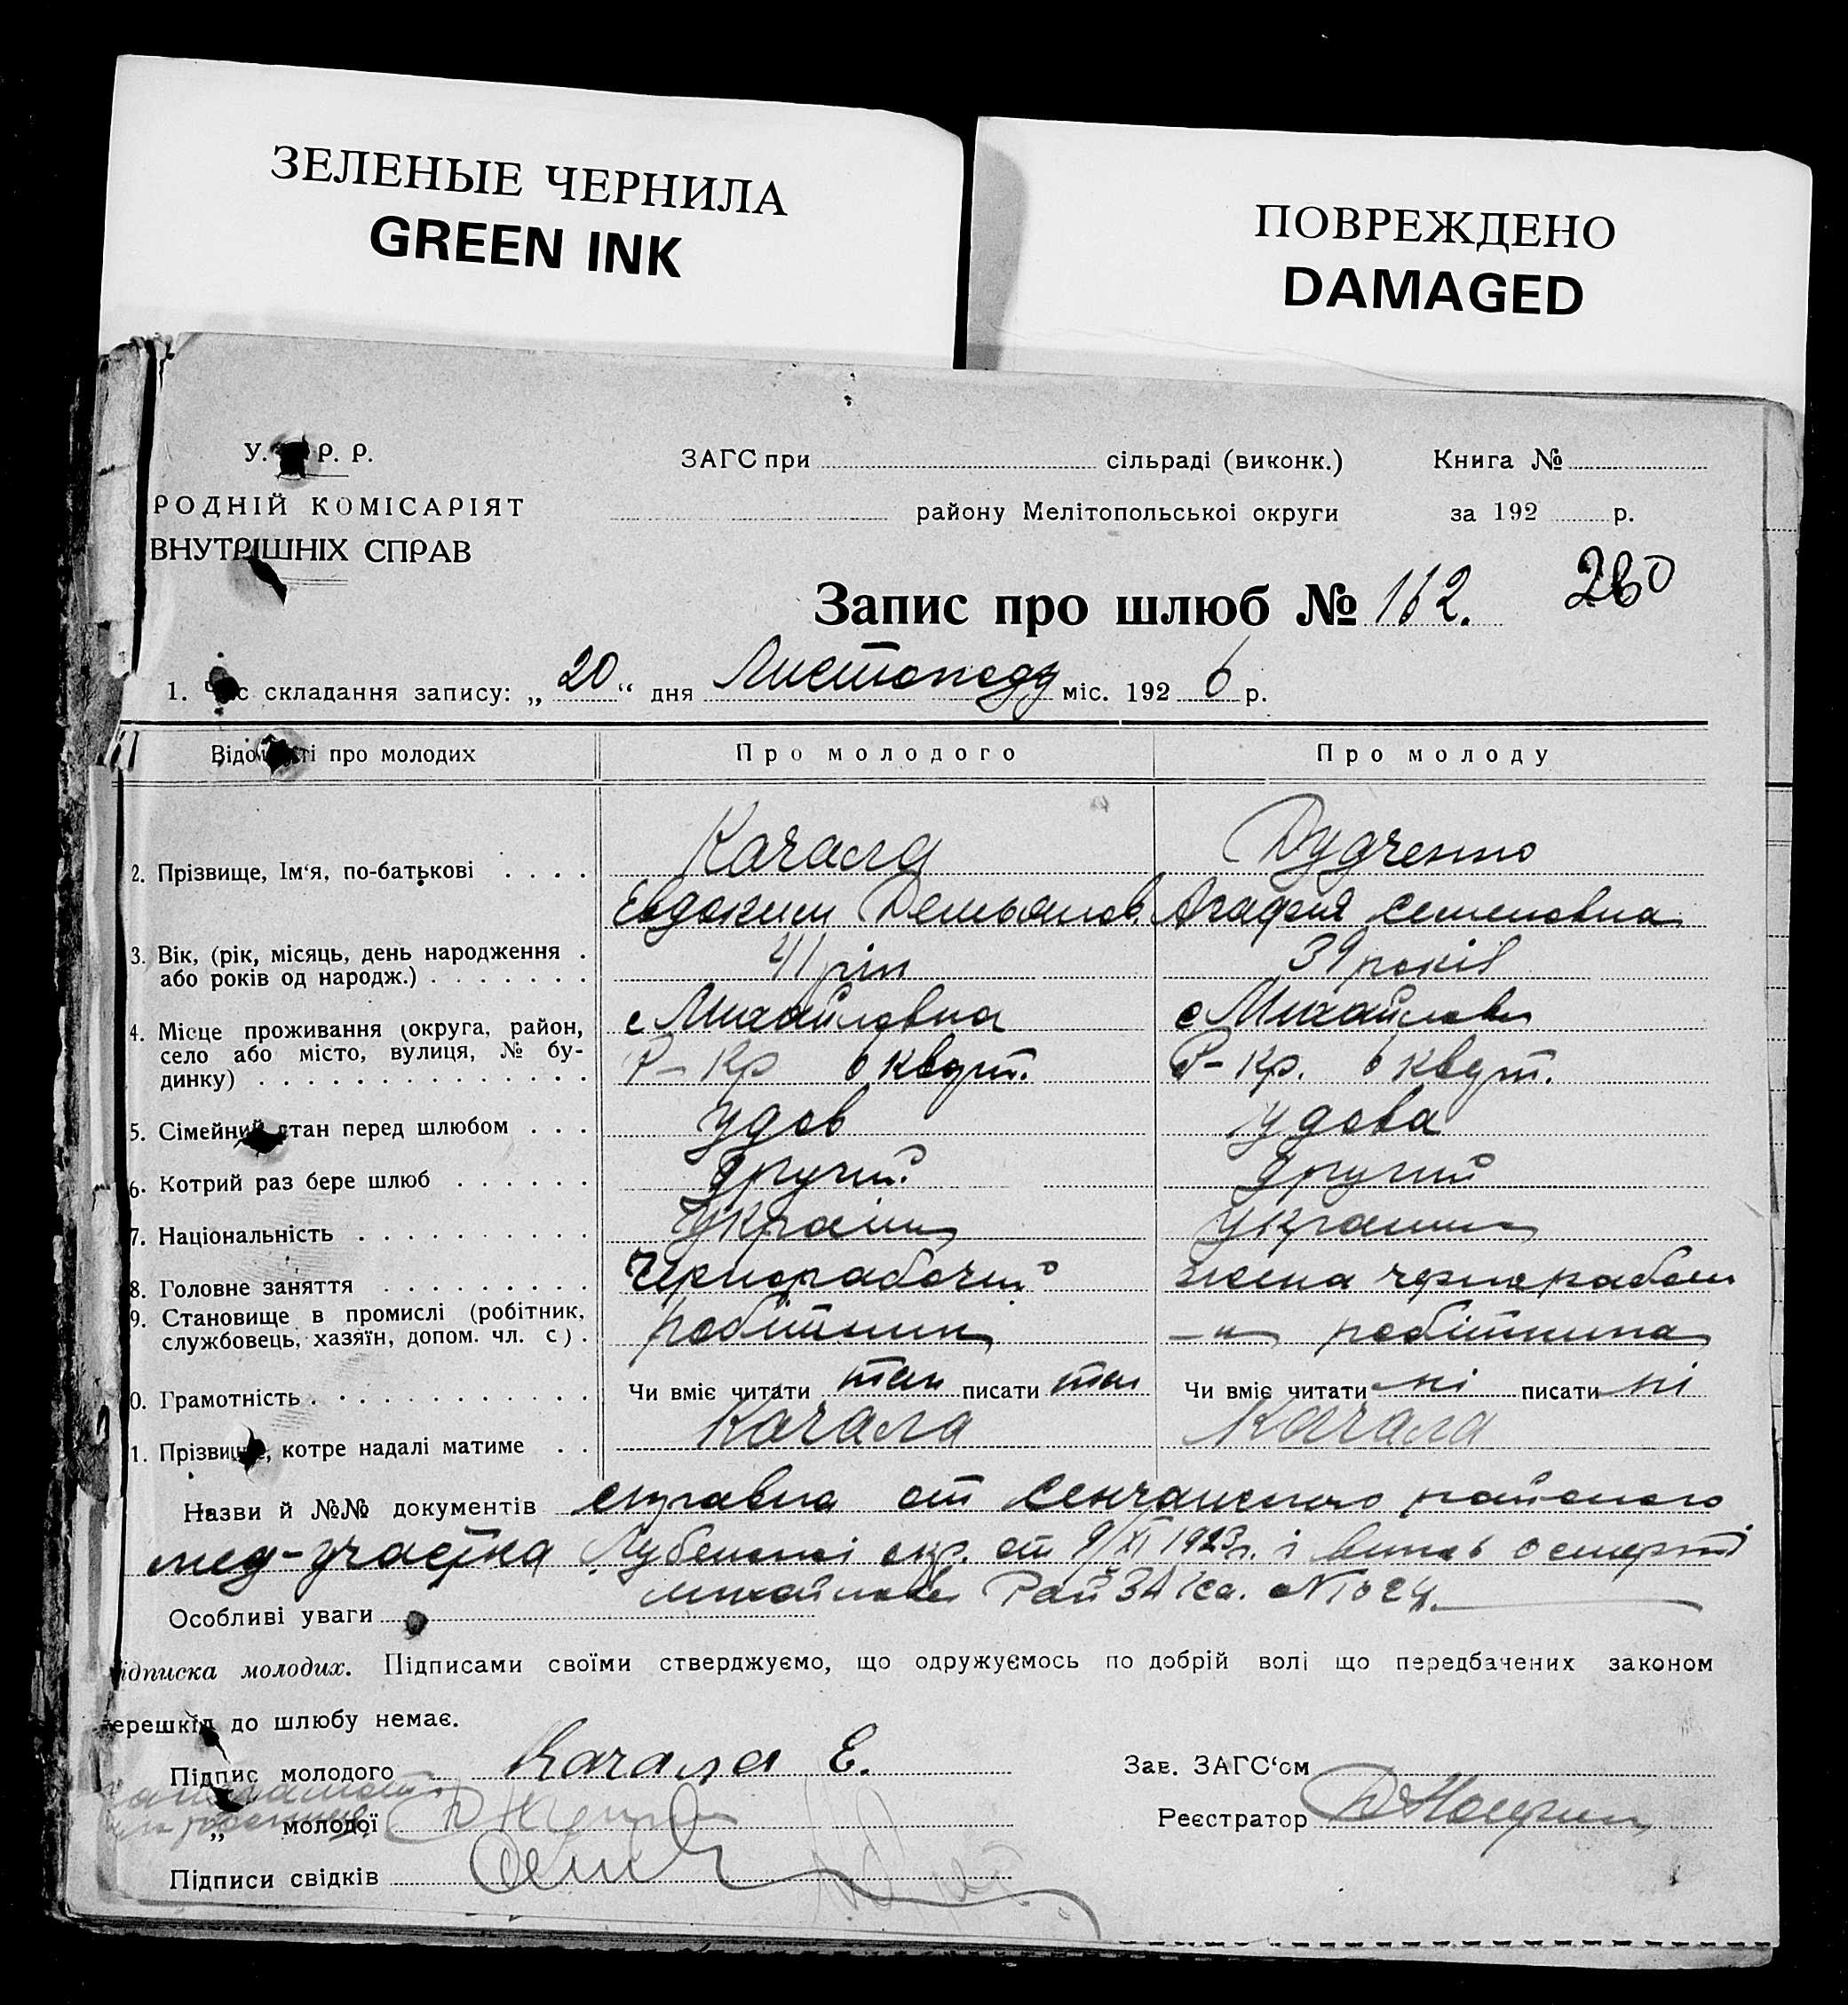 ЗЕЛЕНЫЕ ЧЕРНИЛА
GREEN INK
ПОВРЕЖДЕНО
DAMAGED
У. Р. Р.
РОДНІЙ КОМІСАРІЯТ
ВНУТРІШНІХ СПРАВ
ЗАГС при сільраді (виконк.) Книга №
району Мелітопольської округи за 192 р.
Запис про шлюб № 162. 260
1. Час складання запису: „ 20 “ дня Листопаду міс. 192 6 р.
Відомості про молодих Про молодого Про молоду
2. Прізвище, Ім‘я, по-батькові Качала Дудченко
Евдоким Демьянов. Агафия Семеновна
3. Вік, (рік, місяць, день народження 41 рік 39 років
або років од народж.)
4. Місце проживання (округа, район, с Михайловка с Михайловк
село або місто, вулиця, № бу- Р-Кр 6 кварт. Р-Кр. 6 кварт.
динку)
5. Сімейний стан перед шлюбом удов удова
6. Котрий раз бере шлюб другий другий
7. Національність Україн Украин
8. Головне заняття Чернорабочий жена чернорабоч
9. Становище в промислі (робітник, робітник -„- робітника
службовець, хазяїн, допом. чл. с).
0. Грамотність Чи вміє читати так писати так Чи вміє читати ні писати ні
1. Прізвище, котре надалі матиме Качала Качала
Назви й №№ документів справка от Сенчанского районого
мед-участка Лубенскої окр. от 9/XI 1923р. і смерті
Особливі уваги Михайловк РайЗАГса. №
ідписка молодих. Підписами своїми стверджуємо, що одружуємось по добрій волі що передбачених законом
ерешкід до шлюбу немає.
Підпис молодого Качала Е. Зав. ЗАГС‘ом
„ молодої Реєстратор
Підписи свідків